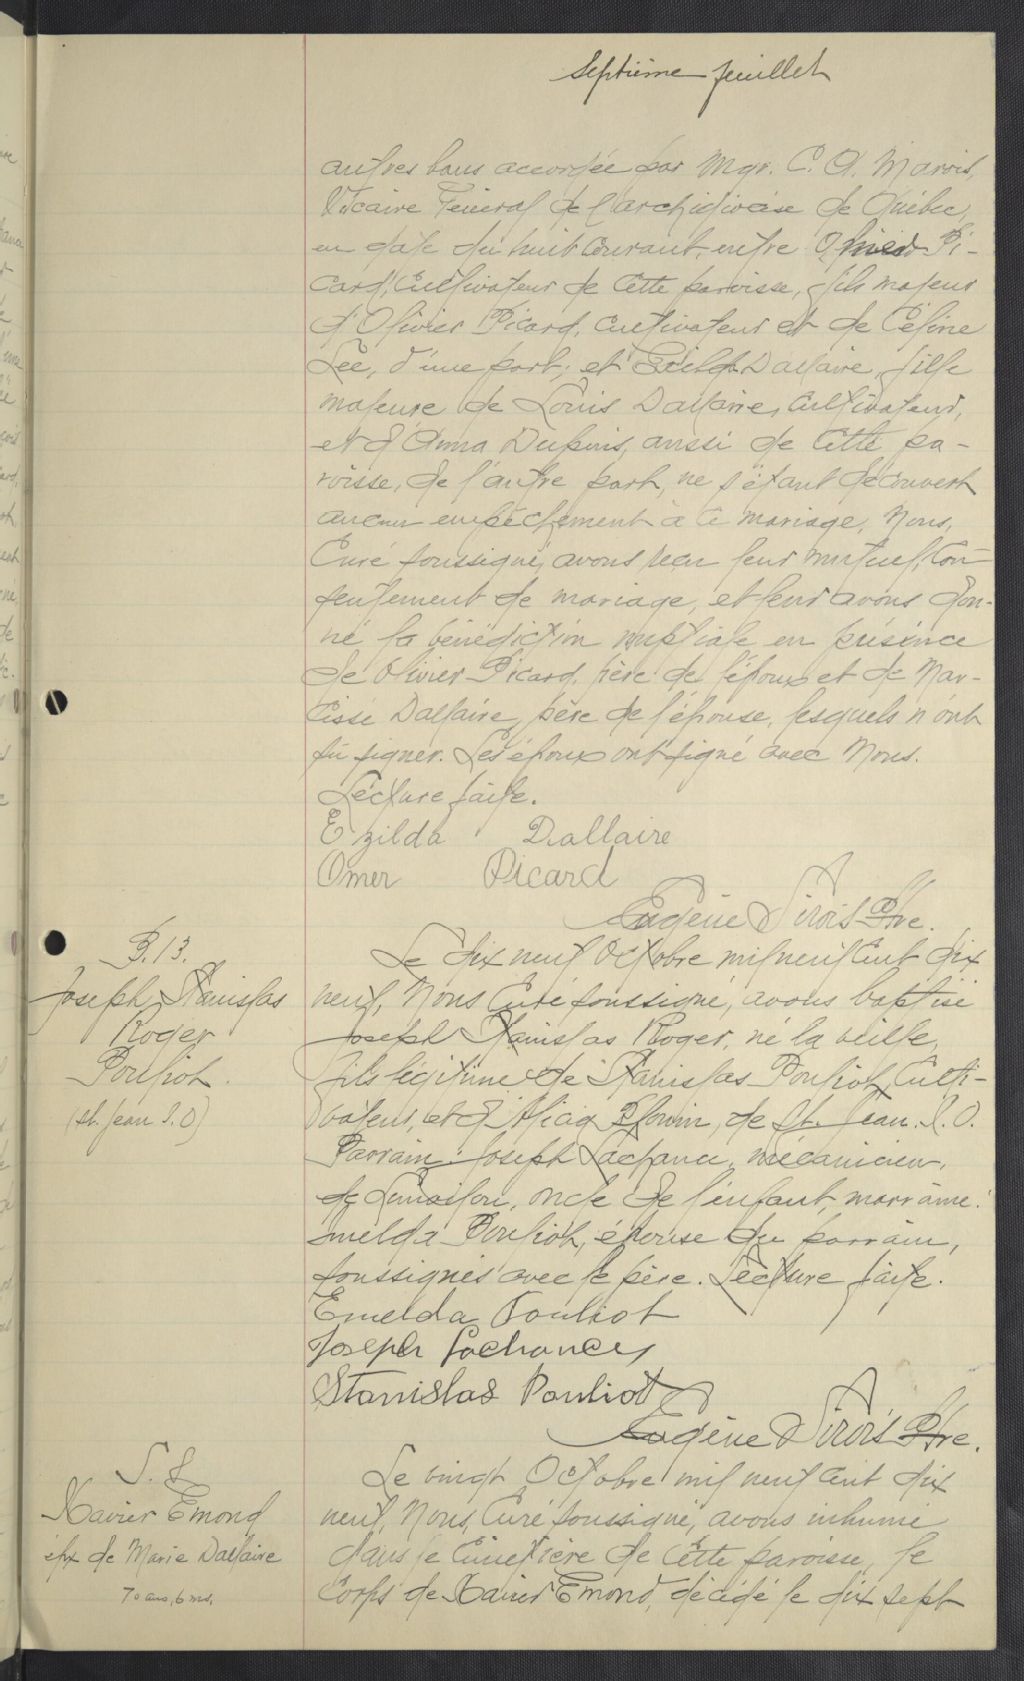 Septième feuillet
autres bans accordée par Mgr. C. A. Marois,
Vicaire Général de l'archidiocèse de Québec,
en date du huit courant, entre Omer Pi-
card, Cultivateur de cette paroisse, fils majeur
d'Olivier Picard, cultivateur et de Céline
Lee, d'une part; et Ezilda Dallaire, fille
majeure de Louis Dallaire, cultivateur,
et d'Anna Dupuis, aussi de cette pa-
roisse, de l'autre part, ne s'étant découvert
aucun empêchement à ce mariage, Nous,
Curé soussigné, avons reçu leur mutuel con-
sentement de mariage, et leur avons don-
né la bénédiction nuptiale en présence
de Olivier Picard, père de l'époux et de Nar-
cisse Dallaire, père de l'épouse, lesquels n'ont
su signer. Les époux ont signé avec Nous.
Lecture faite.
Ezilda Dallaire
Omer Picard
Eugène Sirois Ptre.
B. 13.
Joseph Stanislas
Roger
Pouliot.
(St. Jean I. O)
Le dix neuf Octobre mil neuf cent dix
neuf, Nous Curé soussigné, avons baptisé
Joseph Stanislas Roger, né la veille,
fils légitime de Stanislas Pouliot, Culti-
vateur, et d'Alicia Blouin, de St. Jean. I. O.
Parrain: Joseph Lachance, mécanicien,
de Limoilou, oncle de l'enfant, marraine:
Imelda Pouliot, épouse du parrain,
soussignés avec le père. Lecture faite.
Emelda Pouliot
Joseph Lachance
Stanislas Pouliot
Eugène Sirois Ptre.
Xavier Emond
épx de Marie Dallaire
70 ans, 6 ms.
Le vingt Octobre mil neuf cent dix
neuf, Nous, Curé soussigné, avons inhumé
dans le Cimetière de cette paroisse, le
corps de Xavier Emond, décédé le dix sept